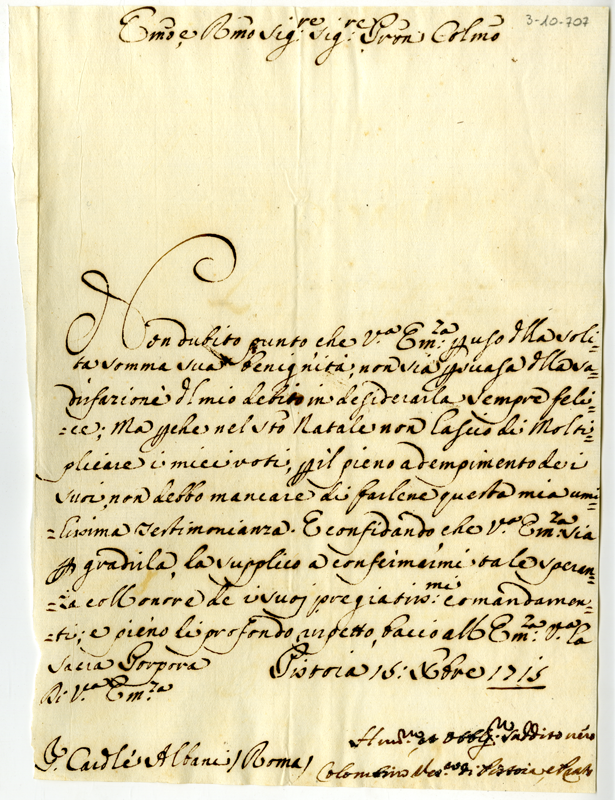 3-10-707
Emo, e Rmo Sig:re Sig:re Pron Colmo
Non dubito punto che V.a Em:za p uso d lla soli-
ta somma sua benignità, non sia psuasa d lla so-
disfazione d l mio debito in desiderarla sempre feli-
=ce; Ma pche nel Sto Natale non lascio di Molti-
plicare i miei voti, p il pieno adempimento de i
suoi, non debbo mancare di farlene questa mia umi-
=lissima testimonianza. E confidando, che V.a Em:za sia
p gradirla, la supplico a confermarmi tale speran-
=za coll onore de i suoi pregiatiss:mi comandamen-
=ti; e pieno di profondo rispetto, bacio all Em:za V.a la
Sacra Porpora Pistoia 16: Xbre 1715
Di V.a Em:za
Sr. Cardle Albani / Roma /
Humo et Obblig Suddito vero
Colombino Vesvo di Pistoia, e Prato